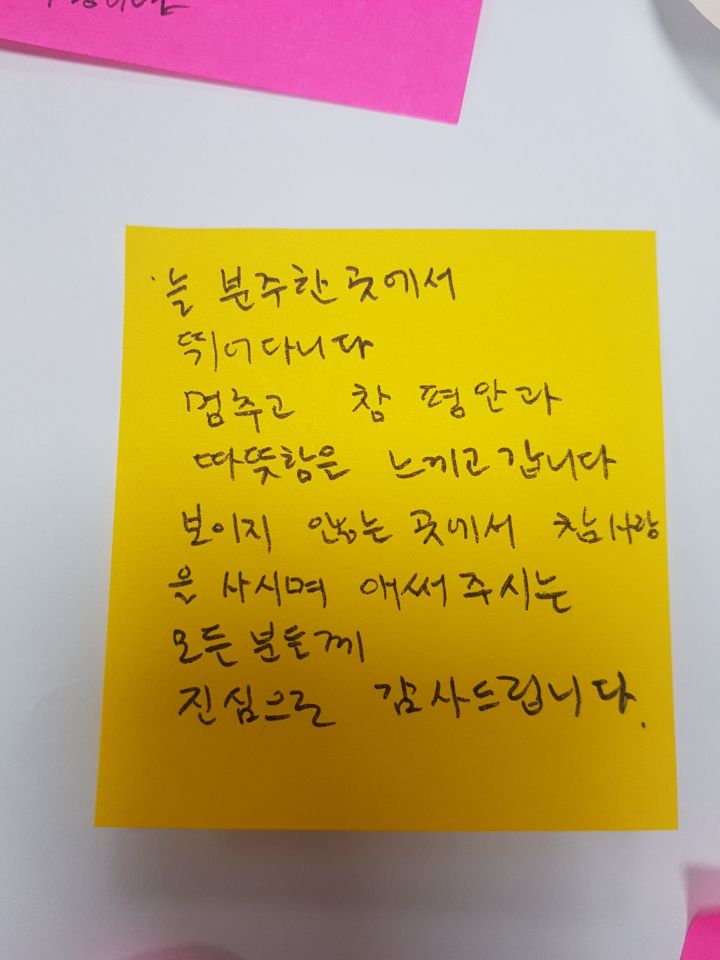 늘 분주한 곳에서
뛰어다니다
멈추고 참 평안과
따뜻함을 느끼고 갑니다
보이지 않는 곳에서 참사랑
을 사시며 애써 주시는
모든 분들께
진심으로 감사드립니다.